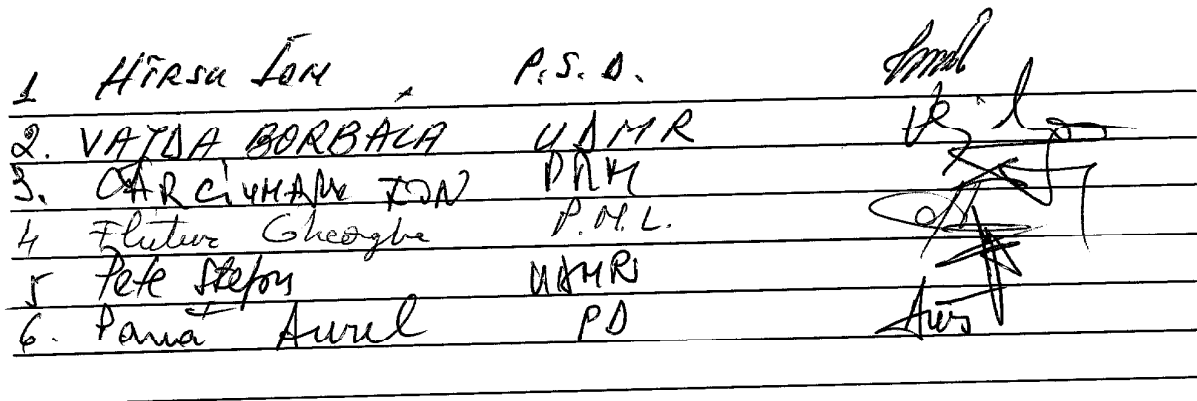 1 HÎRSU ION P.S.D.
2. VAJDA BORBÁLA UDMR
3. CÂRCIUMARU ION PRM
4 Flutur Gheorghe P.N.L.
5 Pete Stefan UDMR
6. Pană Aurel PD